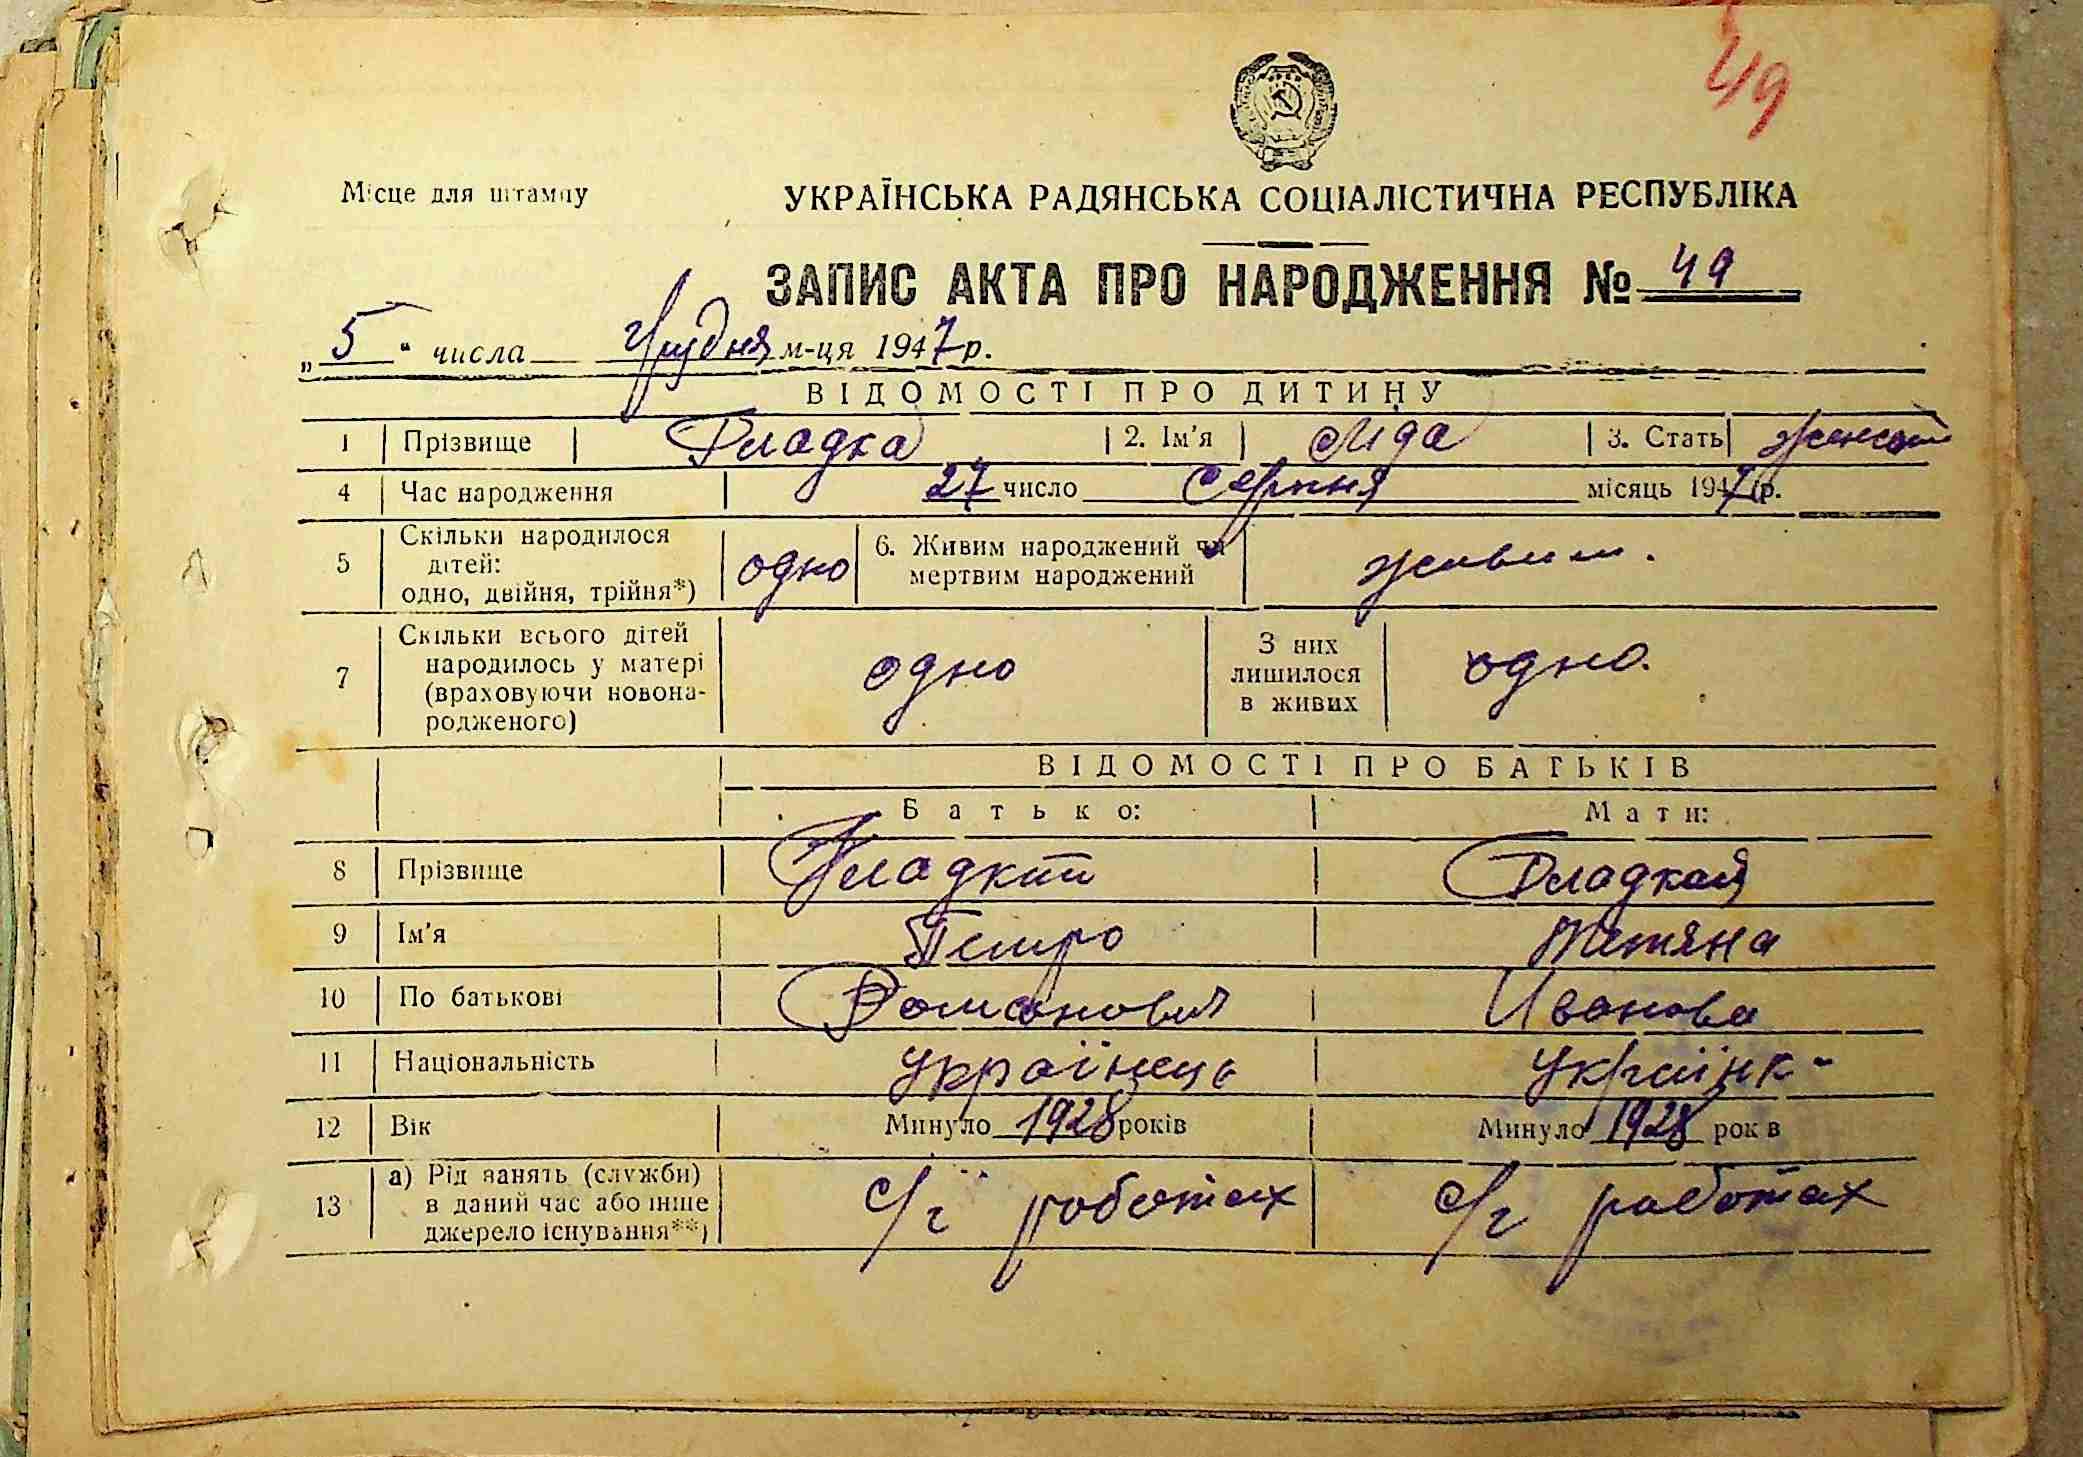 49
Місце для штампу
УКРАЇНСЬКА РАДЯНСЬКА СОЦІАЛІСТИЧНА РЕСПУБЛІКА
ЗАПИС АКТА ПРО НАРОДЖЕННЯ № 49
„5“ числа Грудня м-ця 1947 р.
ВІДОМОСТІ ПРО ДИТИНУ
1 Прізвище Гладка 2. Ім'я Ліда 3. Стать
4 Час народження 27 число Серпня місяць 1947 р.
5 Скільки народилося дітей: одно, двійня, трійня*) одно 6. Живим народжений чи мертвим народжений живим.
7 Скільки всього дітей народилось у матері (враховуючи новонародженого) одно З них лишилося в живих одно.
ВІДОМОСТІ ПРО БАТЬКІВ
Батько: Мати:
8 Прізвище Гладкий Гладкая
9 Ім'я Петро Тетяна
10 По батькові Романович Иванова
11 Національність українець українк-
12 Вік Минуло 1928 років Минуло 1928 рок в
13 а) Рід занять (служби) в даний час або інше джерело існування**) с/г роботах с/г работах